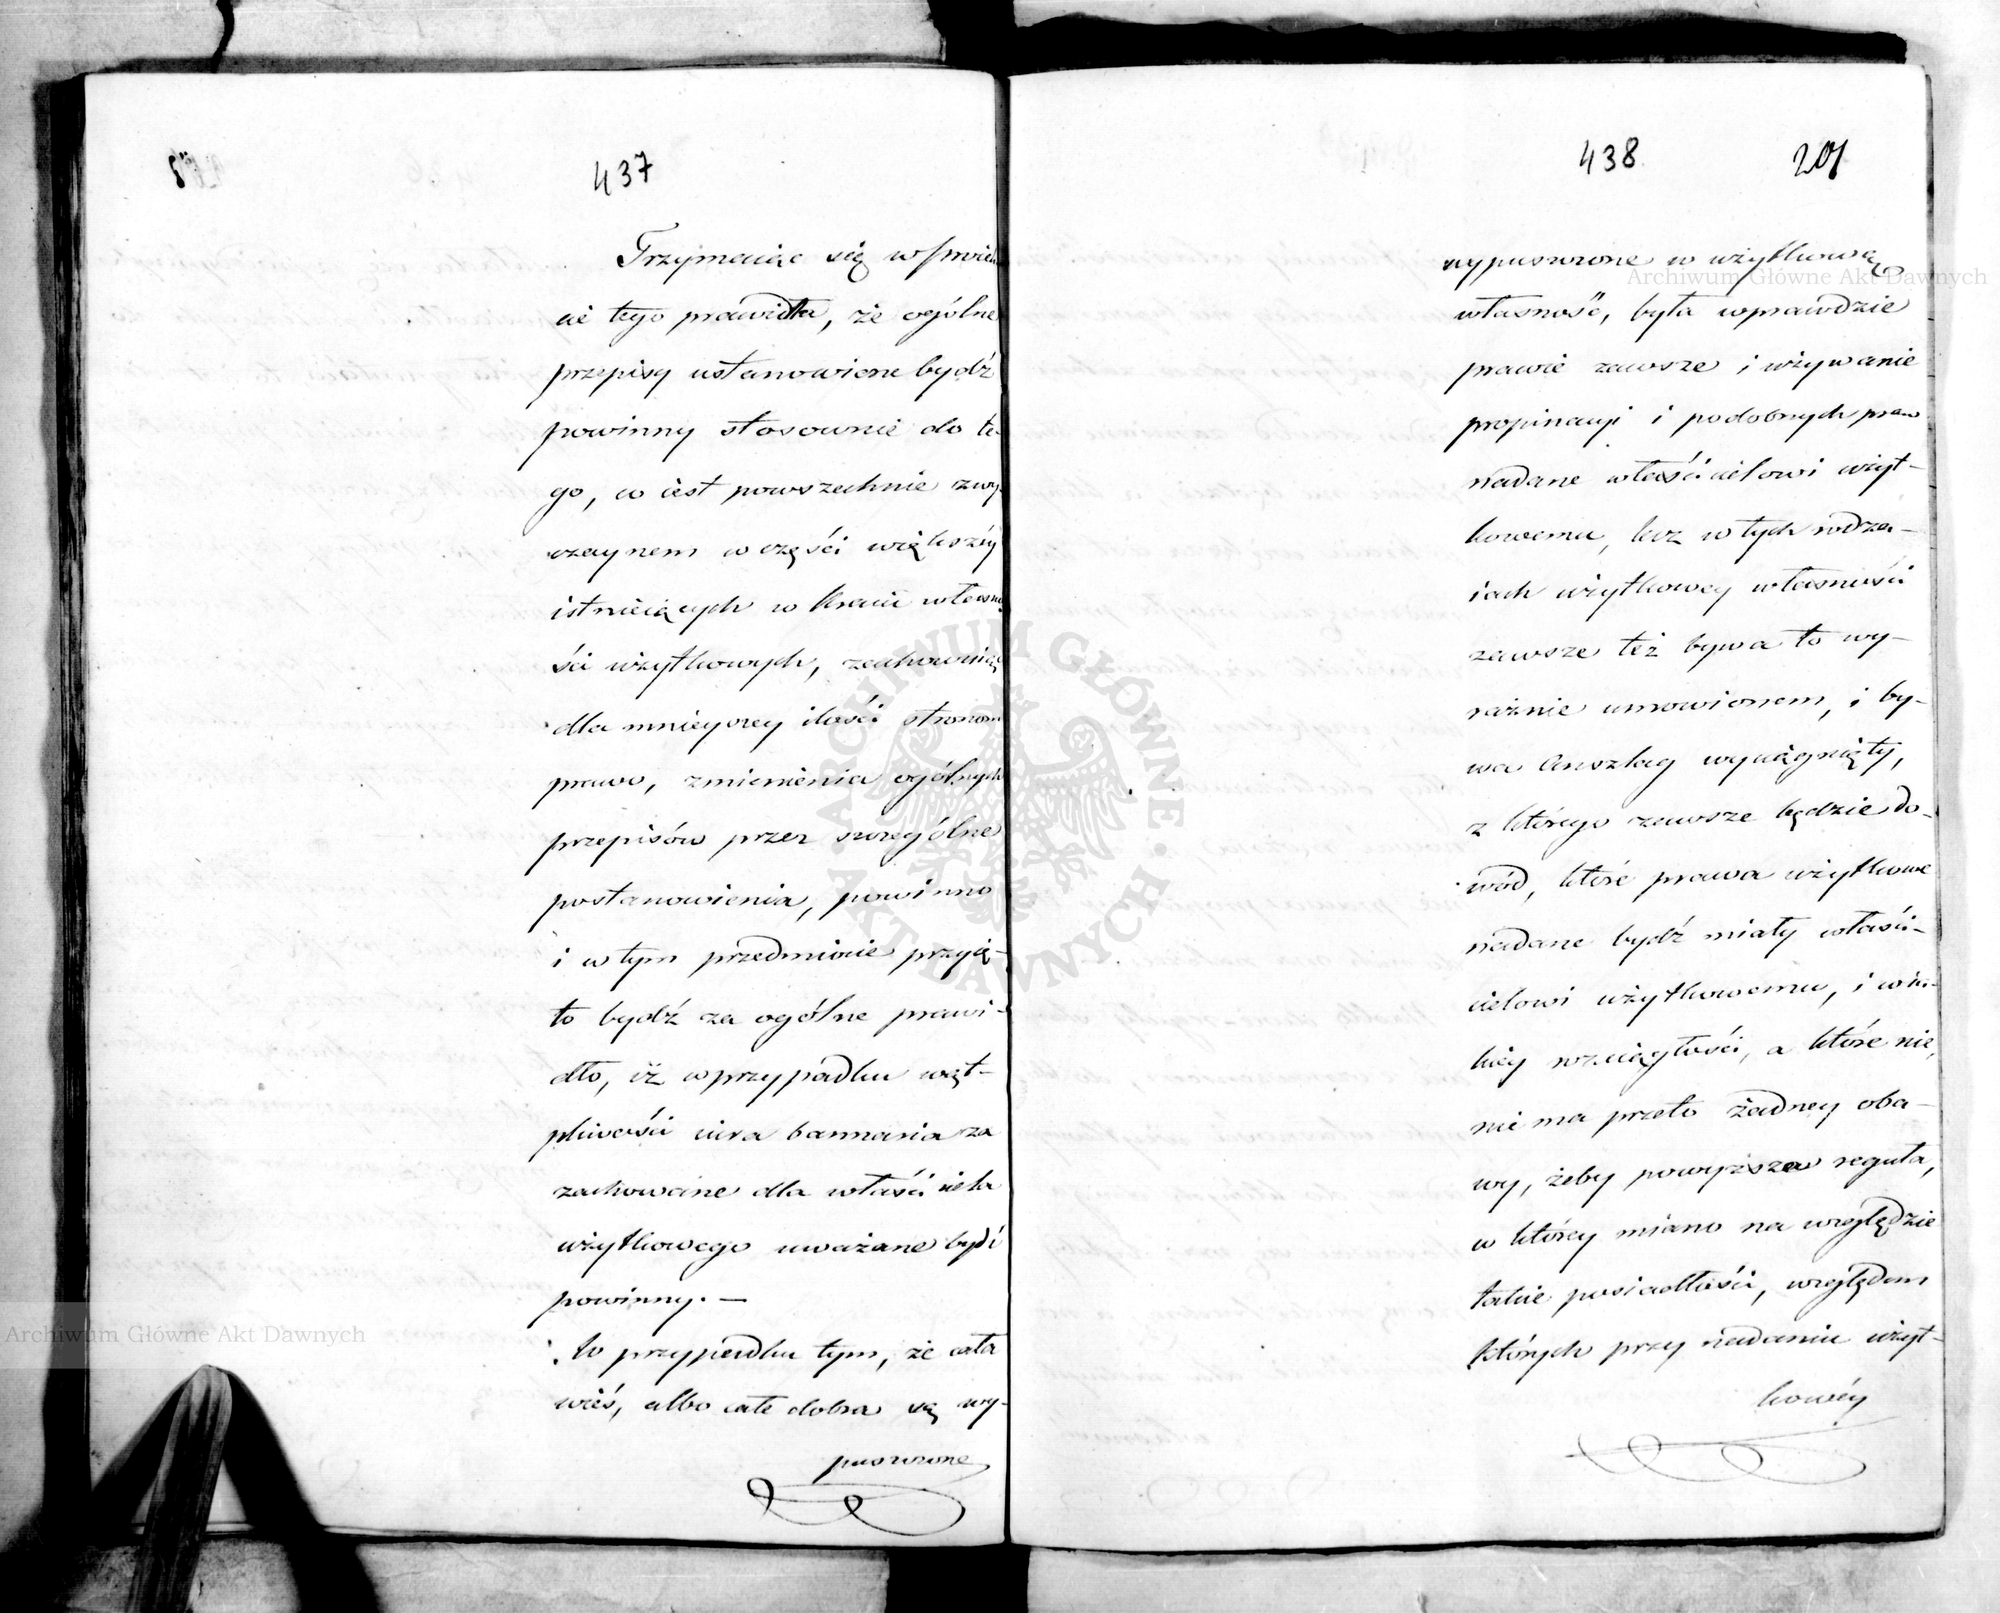 437
Trzymaiąc się wszwie
cie tego prawidła, że ogólne
przepisy ustanowione bydź
powinny stosownie do te-
go, co iest powszechnie zwy-
czaynem w części większéy
istnieiących w kraiu własno
ści użytkowych, zachowuiąc
dla mnieyszey ilości stronom
prawo, zmienienia ogólnych
przepisów przez szczególne
postanowienia, powinno
i w tym przedmiocie przyię-
to bydź za ogólne prawi-
dło, iż w przypadku wąt-
pliwości iura bannaria za
zachowane dla właściciela
użytkowego uważane bydź
powinny. —
W przypadku tym, że cała
wieś, albo całe dobra są wy-
puszczone
438 201
wypuszczone w użytkową
własność, była wprawdzie
prawie zawsze i używanie
propinacyi i podobnych praw
nadane właścicielowi użyt-
kowemu, lecz w tych rodza-
iach użytkowey własności
zawsze też bywa to wy-
raźnie umowionem, i by-
wa Anszlag wyciągnięty,
z którego zawsze będzie do-
wód, które prawa użytkowe
nadane bydź miały właści-
cielowi użytkowemu, i w ia-
kiey rozciągłości, a które nie,
nie ma przeto żadney oba-
wy, żeby powyższa reguła,
w którey miano na względzie
takie posiadłości, względem
których przy nadaniu użyt-
kowéy
Archiwum Główne Akt Dawnych
Archiwum Główne Akt Dawnych
ARCHIWUM GŁÓWNE · AKT DAWNYCH ·